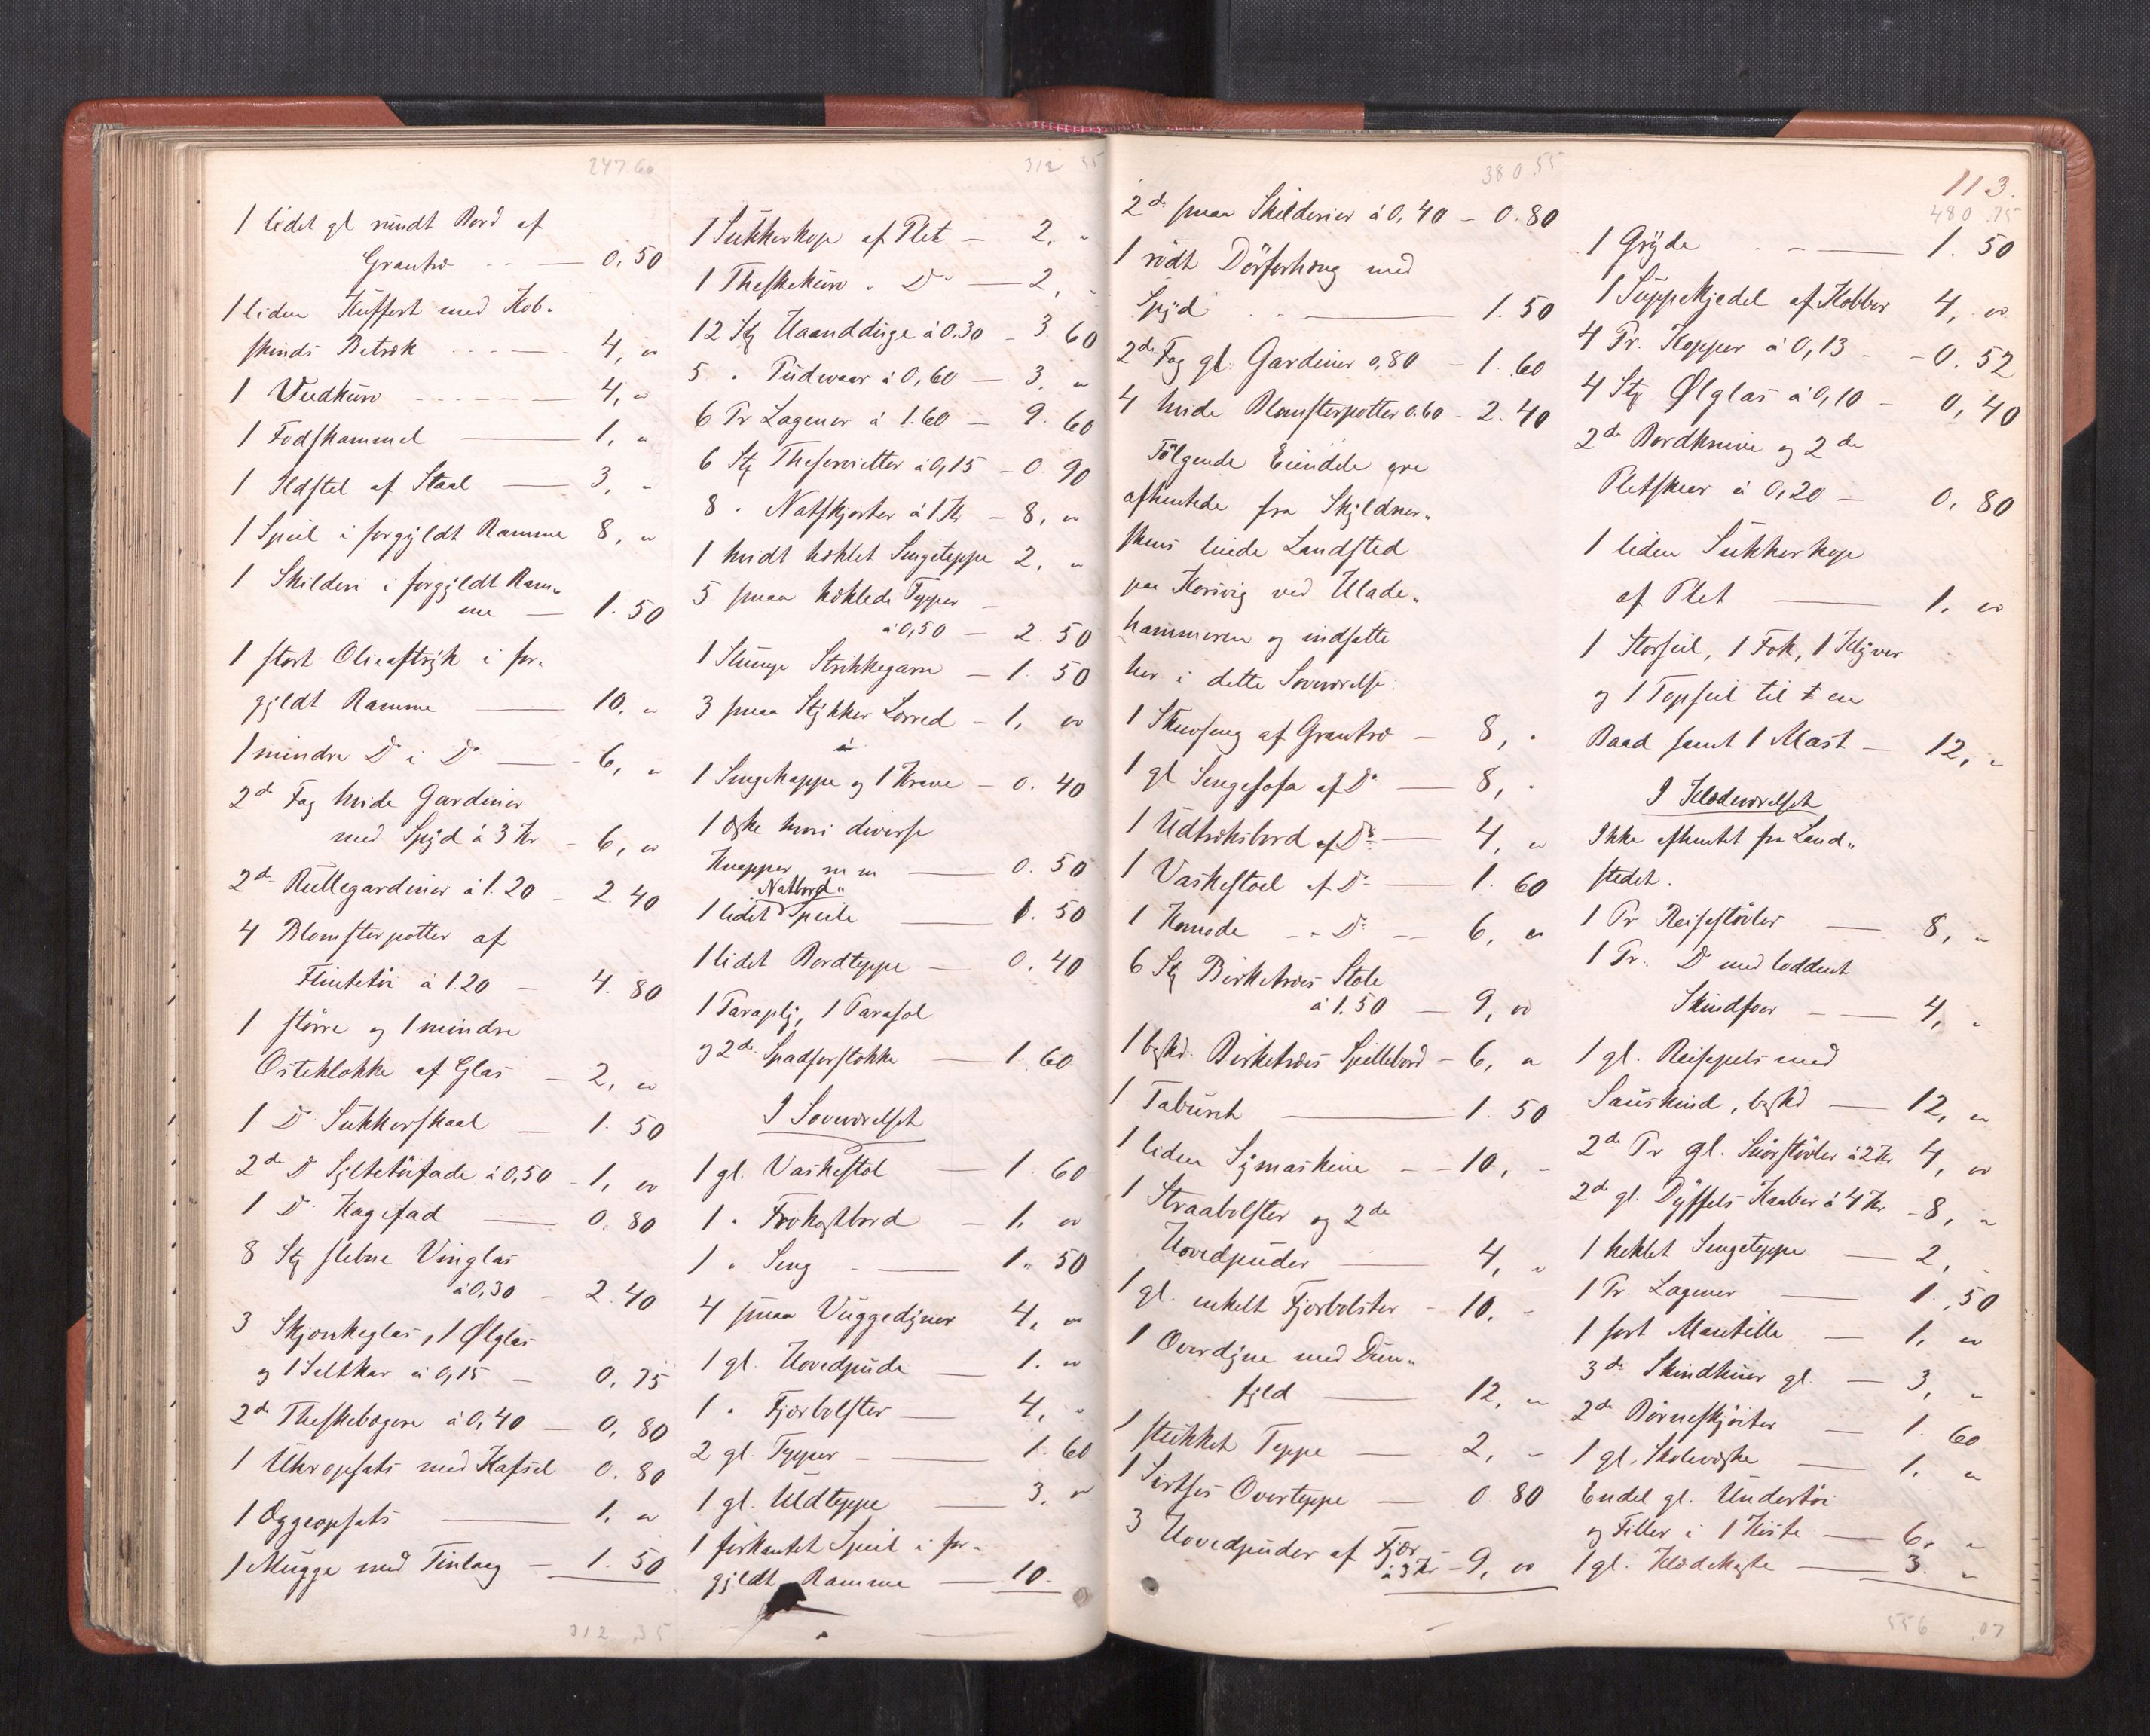 247 60
1 lidet gl rundt Bord af
Grantræ - - — 0,50
1 liden Kuffert med Kob-
skinds Betræk - - - — 4, "
1 Vedkurv - - - - - — 4, "
1 Fodskammel — 1, "
1 Ildstel af Staal — 3, "
1 Speil i forgyldt Ramme 8, "
1 Skilderi i forgyldt Ram-
me — 1.50
1 stort Olieaftryk i for-
gyldt Ramme — 10, "
1 mindre Do i Do — 6, "
2de Fag hvide Gardiner
med Spyd à 3 Kr - 6, "
2de Rullegardiner à 1.20 - 2.40
4 Blomsterpotter af
Flintetøi à 1.20 - 4.80
1 større og 1 mindre
Osteklokke af Glas - 2, "
1 Do Sukkerskaal - 1.50
2de Do Syltetøifade à 0,50 - 1, "
1 Do Kagefad — 0.80
8 Stk slebne Vinglas
à 0,30 - 2.40
3 Skjænkeglas, 1 Ølglas
og 1 Saltkar à 0,15 - 0.75
2de Theskebægere à 0,40 — 0,80
1 Uhropsats med Kafsel 0.80
1 Æggeopsats — 1. "
1 Mugge med Tinlaag - 1.50
312 35
312 35
1 Sukkerkop af Plet — 2, "
1 Theskekurv " Do — 2, "
12 Stk Haandduge à 0.30 - 3.60
5 " Pudevaar à 0,60 — 3, "
6 Pr Lagener à 1.60 — 9.60
6 Stk Theservietter à 0,15 - 0.90
8 " Natskjorter à 1 Kr - 8, "
1 hvidt hæklet Sengeteppe 2, "
5 smaa hæklede Tepper -
à 0,50 - 2.50
1 Slump Strikkegarn - 1.50
3 smaa Stykker Lærred - 1, "
1 Sengekappe og 1 Krave - 0.40
1 Æske hvori diverse
Knapper m m — 0.50
Natbord"
1 lidet Speile — 1.50
1 lidet Bordteppe - 0.40
1 Paraply, 1 Parasol
og 2de Spadserstokke — 1.60
I Soveværelset
1 gl. Vaskestol — 1.60
1 " Frokostbord — 1. "
1 " Seng - — 1.50
4 smaa Vuggedyner 4, "
1 gl. Hovedpude — 1. "
1 " Fjærbolster — 4, "
2 gl. Tepper - — 1.60
1 gl. Uldteppe — 3, "
1 firkantet Speil i for-
gyldt Ramme — 10.
380.55
2de smaa Skilderier à 0,40 - 0.80
1 rødt Dørforhæng med
Spyd - - — 1.50
2de Fag gl. Gardiner 0,80 - 1.60
4 hvide Blomsterpotter 0.60 - 2.40
Følgende Eiendele ere
afhentede fra Skyldner-
skens leiede Landsted
paa Korsvig ved Hlade-
hammeren og indsatte
her i dette Soveværelse:
1 Skuvseng af Grantræ - 8, "
1 gl Sengesofa af Do — 8, "
1 Udtræksbord af Do — 4, "
1 Vaskestoel af Do — 1.60
1 Komode - " Do — 6, "
6 Stk Birketræes Stole
à 1.50 — 9, "
1 beskd. Birketræes Spillebord - 6, "
1 Taburet — 1.50
1 liden Symaskine - - 10, "
1 Straabolster og 2de
Hovedpuder — 4, "
1 gl. enkelt Fjærbolster - 10. "
1 Overdyne med Dun-
fyld — 12, "
1 stukket Teppe — 2, "
1 Sirtses Overteppe — 0.80
3 Hovedpuder af Fjær -
à 3 Kr - 9, "
113.
480.75
1 Gryde - - — 1.50
1 Suppekjedel af Kobber 4, "
4 Pr. Kopper à 0,13 - - 0.52
4 Stk Ølglas à 0,10 - 0,40
2de Bordknive og 2de
Pletskeer à 0,20 — 0,80
1 liden Sukkerkop
af Plet — 1. "
1 Storseil, 1 Fok, 1 Klyver
og 1 Topseil til en
Baad samt 1 Mast — 12, "
I Klædeværelset
Ikke afhentet fra Land-
stedet.
1 Pr Reisestøvler — 8, "
1 Pr. Do med loddent
Skindfoer - — 4, "
1 gl. Reisepels med
Saueskind, beskd — 12, "
2de Pr gl. Snørstøvler à 2 Kr 4, "
2de gl. Dyffels Kaaber à 4 Kr - 8, "
1 heklet Sengeteppe — 2, "
1 Pr. Lagener — 1.50
1 sort Mantille — 1. "
3de Skindhuer gl. — 3, "
2de Børneskjørter — 1.60
1 gl. Skolevæske — 1. "
Endel gl. Undertøi
og Filler i 1 Kiste — 6, "
1 gl. Klædekiste — 3. "
556.07